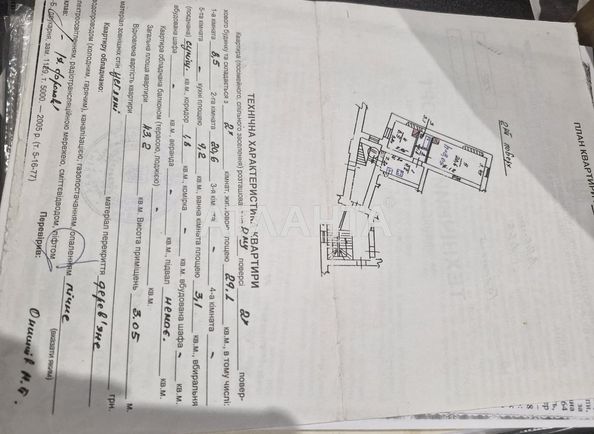 ПЛАН КВАРТИРИ
2й поверх
ТЕХНІЧНА ХАРАКТЕРИСТИКА КВАРТИРИ
Квартира (посімейного, спільного заселення) розташована на 2му поверсі 2х повер-
хового будинку та складається з 2х кімнат, житловою площею 29.1 кв.м., в тому числі:
1-а кімната 8,5 2-га кімната 20,6 3-я кімната - 4-а кімната -
5-та кімната - кв.м., кухні площею 9,2 кв.м., ванна кімната площею 3,1 кв.м., вбиральня
(поєднана) суміщ. кв.м., коридор 1,8 кв.м., комірка - кв.м., вбудована шафа - кв.м.
вбудована шафа - кв.м., веранда - кв.м., підвал немає. кв.м.
Квартира обладнана балконом (терасою, лоджією) кв.м.
Загальна площа квартири 43.2 кв.м. Висота приміщень 3.05 м.
Відновлена вартість квартири грн.
матеріал зовнішніх стін цегляні матеріал перекриття дерев'яне
Квартиру обладнано:
водопроводом (холодним, гарячим), каналізацією, газопостачанням, опаленням пічне
електроосвітленням, радіотрансляційною мережею, сміттєвідводом, ліфтом (вказати яким)
Перевірив: Онишків М.Б.
зам. 1129, т. 5000. – 2005 р. (т. 5-16-77)